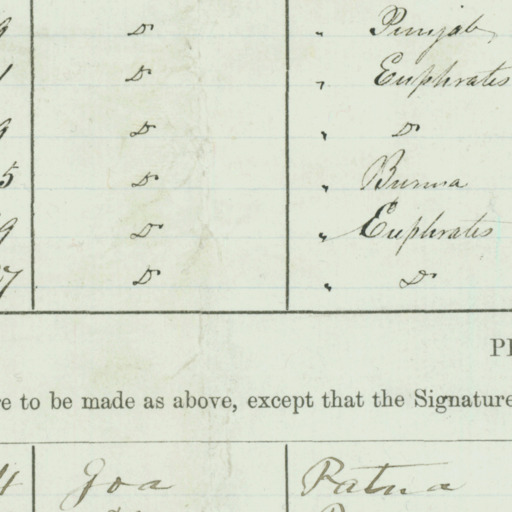 9 Do " Punjab
1 Do " Euphrates
9 Do " Do
5 Do " Burma
9 Do " Euphrates
7 Do " Do
re to be made as above, except that the Signature
4 Goa Patna